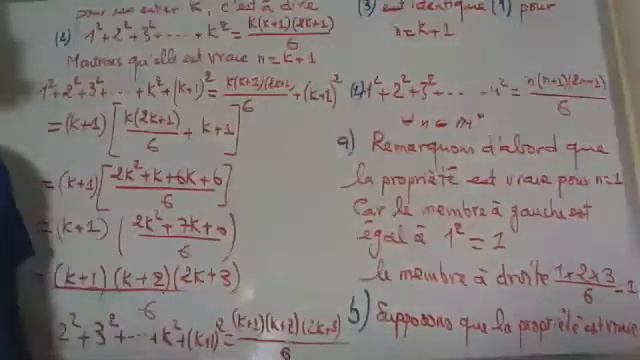 pour un entier K, c'est à dire
(2) 1²+2²+3²+.....+K²=K(K+1)(2K+1)/6
Montrons qu'elle est vraie n=K+1
1²+2²+3²+.....+K²+(K+1)²=K(K+1)(2K+1)/6+(K+1)²
=(K+1)[K(2K+1)/6+K+1]
=(K+1)[2K²+K+6K+6/6]
=(K+1)(2K²+7K+6/6)
=(K+1)(K+2)(2K+3)/6
2²+3²+...+K²+(K+1)²=(K+1)(K+2)(2K+3)/6
(3) est identique (1) pour
n=K+1
1²+2²+3²+.....n²=n(n+1)(2n+1)/6
∀n
a) Remarquons d'abord que
la propriété est vraie pour n=1
Car le membre à gauche est
égal à 1²=1
le membre à droite 1×2×3/6=1
b) Supposons que la propriété est vraie